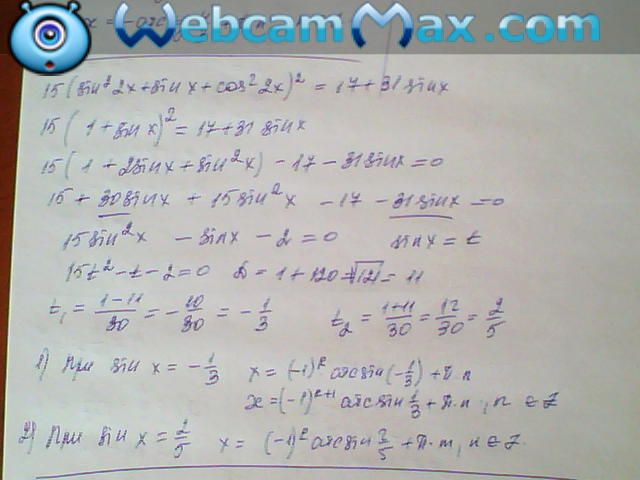 WebcamMax.com
15(sin²2x+sinx+cos²2x)² = 17+31sinx
15(1+sinx)² = 17+31sinx
15(1+2sinx+sin²x) -17-31sinx=0
15+30sinx + 15sin²x -17 -31sinx=0
15sin²x -sinx -2=0 sinx=t
15t²-t-2=0 D=1+120=√121=11
t₁ = (1-11)/30 = -10/30 = -1/3 t₂ = (1+11)/30 = 12/30 = 2/5
1) При sin x = -1/3 x=(-1)ᵏ arcsin(-1/3)+π·n
x=(-1)ᵏ⁺¹ arcsin 1/3 +π·n, n ∈ Z
2) При sin x = 2/5 x= (-1)ᵏ arcsin 2/5 +π·n, n ∈ Z